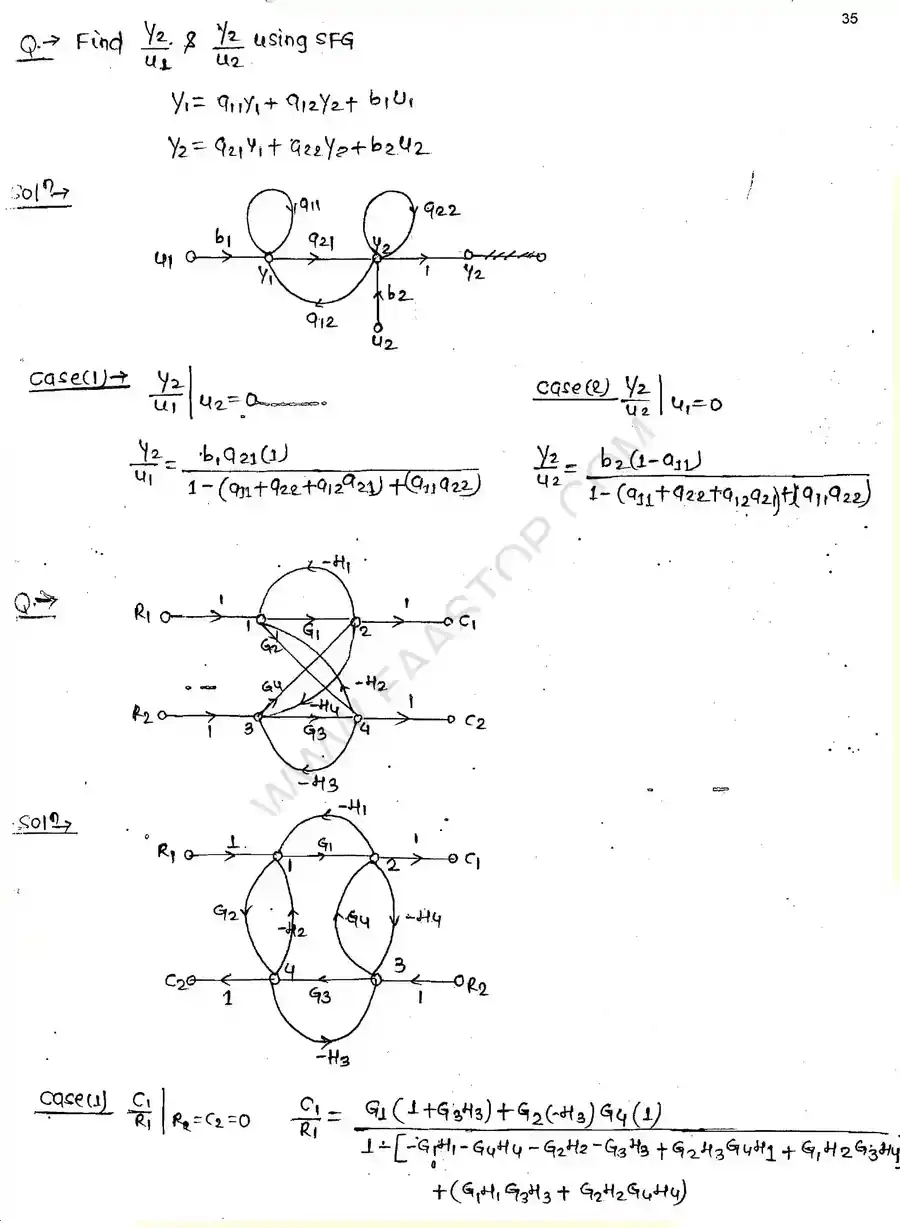 35
Q.→ Find Y2/U1 & Y2/U2 using SFG
Y1 = a11Y1 + a12Y2 + b1U1
Y2 = a21Y1 + a22Y2 + b2U2
Soln→
a11 a22
U1 b1 Y1 a21 Y2 1 Y2
a12 b2
U2
Case(1)→ Y2/U1 | U2=0
Case(2) Y2/U2 | U1=0
Y2/U1 = b1a21(1) / 1-(a11+a22+a12a21)+(a11a22)
Y2/U2 = b2(1-a11) / 1-(a11+a22+a12a21)+(a11a22)
Q.→
-H1
R1 1 1 G1 2 1 C1
G2
G4 -H4 -H2
R2 1 3 G3 4 1 C2
-H3
Soln→
-H1
R1 1 1 G1 2 1 C1
G2 -H2 G4 -H4
C2 1 4 G3 3 1 R2
-H3
Case(1) C1/R1 | R2=C2=0
C1/R1 = G1(1+G3H3)+G2(-H3)G4(1) / 1-[-G1H1-G4H4-G2H2-G3H3+G2H3G4H1+G1H2G3H4
+(G1H1G3H3+G2H2G4H4)
WWW.FAASTOP.COM